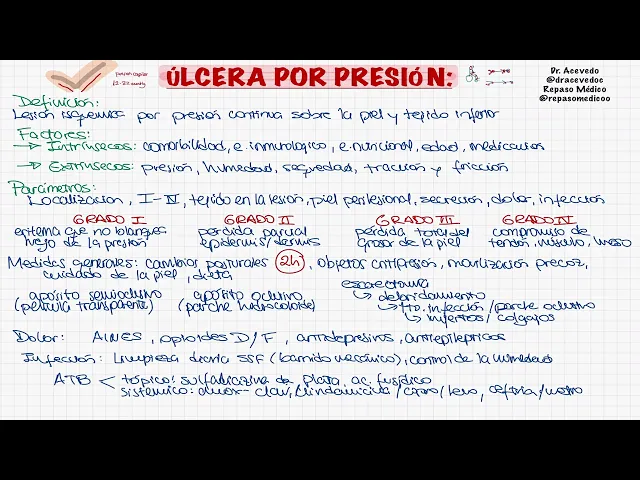 presión capilar
ÚLCERA POR PRESIÓN:
Dr. Acevedo
@dracevedoc
Repaso Médico
@repasomedicoo
Definición:
Lesión isquemica por presión continua sobre la piel y tejido inferior
Factores:
→ Intrínsecos: comorbilidad, e. inmunologico, e. nutricional, edad, medicación
→ Extrínsecos: presión, humedad, sequedad, tracción y fricción
Parámetros:
Localización, I-IV, tejido en la lesión, piel perilesional, secreción, dolor, infección
GRADO I GRADO II GRADO III GRADO IV
eritema que no blanquea pérdida parcial pérdida total del compromiso de
luego de la presión epidermis/dermis grosor de la piel tendón, músculo, hueso
Medidas generales: cambios posturales 2h, objetos antipresión, movilización precoz,
cuidado de la piel, dieta
escarectomía
apósito semioclusivo apósito oclusivo → desbridamiento
(película transparente) (parche hidrocoloide) → tto. infección/parche oclusivo
→ injertos/colgajos
Dolor: AINES, opioides D/F, antidepresivos, antiepilepticos
Infección: limpieza diaria SSF (barrido mecánico), control de la humedad
ATB < tópico: sulfadiazina de plata, ac. fusídico
sistemico: amox-clav, clindamicina/cipro/levo, ceftria/metro